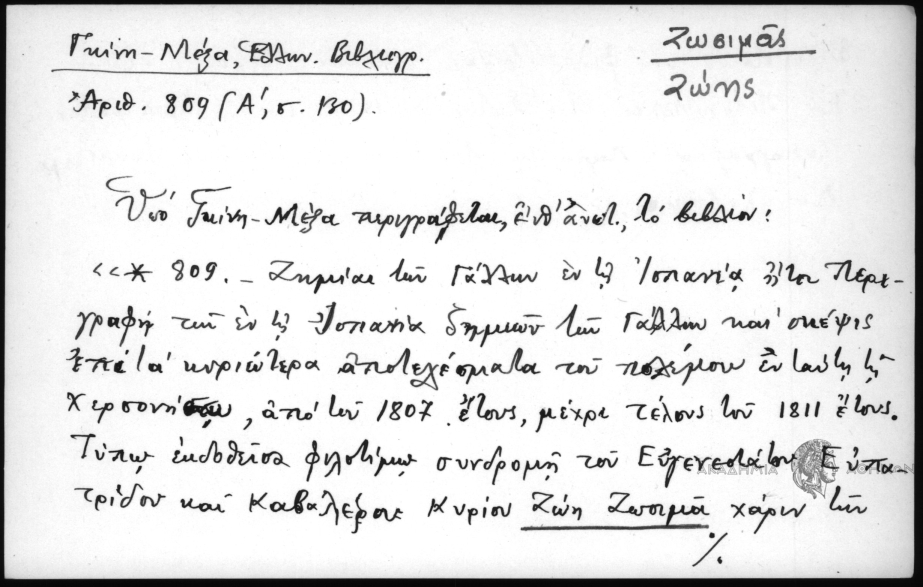 Γκίνη-Μέξα, Ἑλλην. Βιβλιογρ.
Ζωσιμᾶς
Ζώης
Ἀριθ. 809 (Α΄, σ. 130).
Ὑπό Γκίνη-Μέξα περιγράφεται, ἔνθ' ἀνωτ., τό βιβλίον:
«* 809. - Ζημίαι τῶν Γάλλων ἐν τῇ Ἱσπανίᾳ ἤτοι Περι-
γραφή τῶν ἐν τῇ Ἱσπανίᾳ ζημιῶν τῶν Γάλλων καί σκέψις
ἐπί τά κυριώτερα ἀποτελέσματα τοῦ πολέμου ἐν ταύτῃ τῇ
Χερσονήσῳ, ἀπό τοῦ 1807 ἔτους, μέχρι τέλους τοῦ 1811 ἔτους.
Τύπῳ ἐκδοθεῖσα φιλοτίμῳ συνδρομῇ τοῦ Εὐγενεστάτου Εὐπα-
τρίδου καί Καβαλέρου Κυρίου Ζώη Ζωσιμᾶ χάριν τῶν
./.
ΑΚΑΔΗΜΙΑ ΑΘΗΝΩΝ